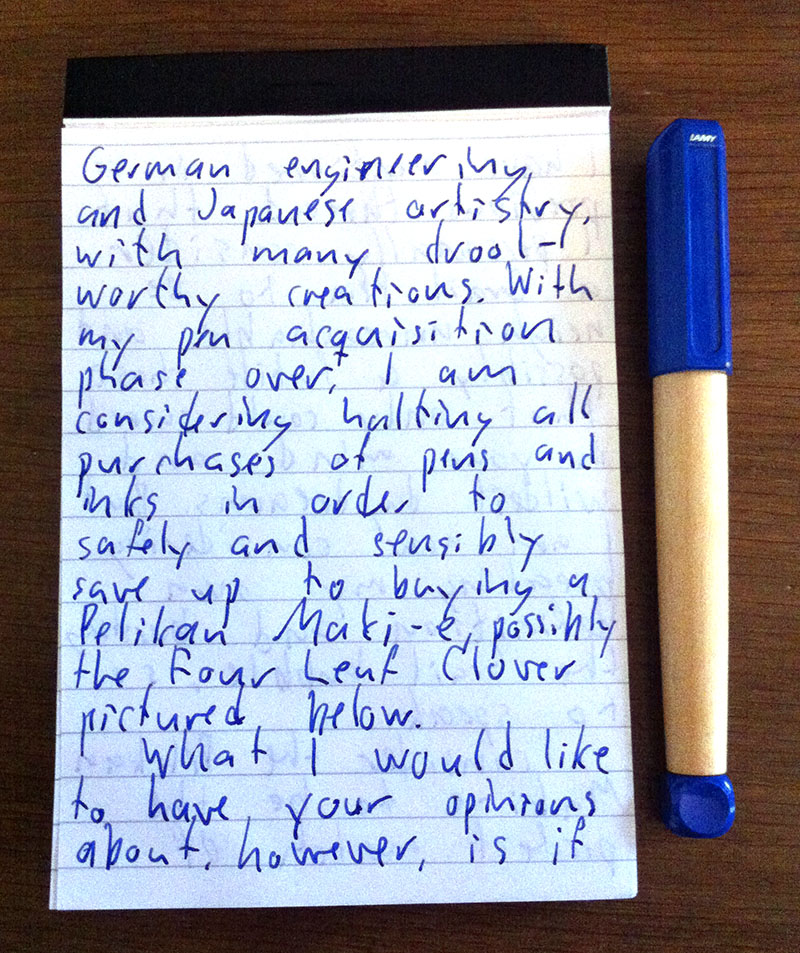 German engineering,
and Japanese artistry,
with many drool-
worthy creations. With
my pen acquisition
phase over, I am
considering halting all
purchases of pens and
inks in order to
safely and sensibly
save up to buying a
Pelikan Maki-e, possibly
the Four Leaf Clover
pictured below.
What I would like
to have your opinions
about, however, is if
LAMY